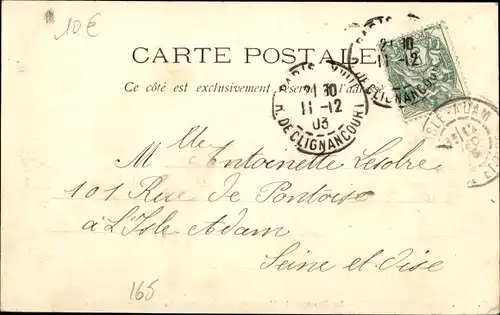 10 €
CARTE POSTALE
Ce côté est exclusivement réservé à l'adresse
PARIS XVIII
21 30
11-12
03
R. DE CLIGNANCOURT
21 30
11-12
DE CLIGNANCOURT
ISLE-ADAM
Mlle Antoinette Lesobre
101 Rue de Pontoise
à L'Isle Adam
Seine et Oise
165